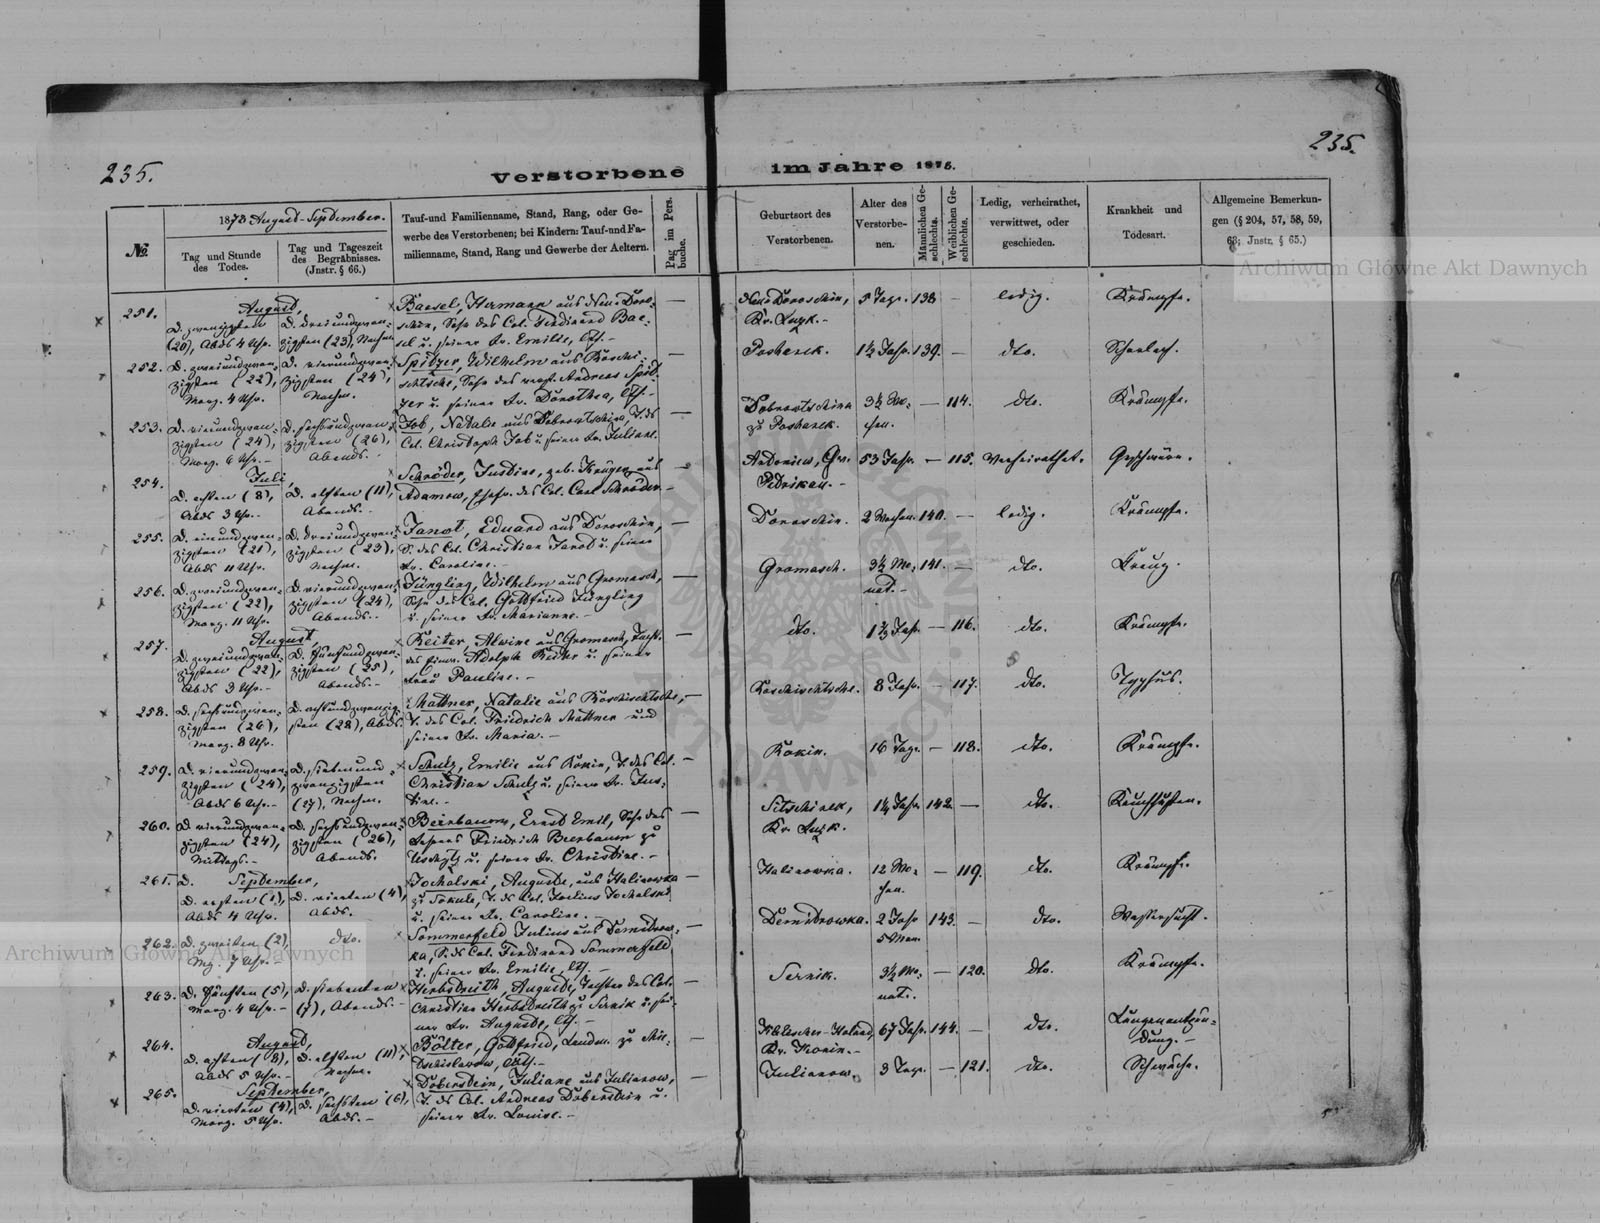 235.
235.
Verstorbene
im Jahre 1878.
№
1878 August-September.
Tag und Stunde
des Todes.
Tag und Tageszeit
des Begräbnisses.
(Jnstr. § 66.)
Tauf-und Familienname, Stand, Rang, oder Ge-
werbe des Verstorbenen; bei Kindern: Tauf-und Fa-
milienname, Stand, Rang und Gewerbe der Aeltern.
Pag im Pers.
buche.
Geburtsort des
Verstorbenen.
Alter des
Verstorbe-
nen.
Männlichen Ge-
schlechts.
Weiblichen Ge-
schlechts.
Ledig, verheirathet,
verwittwet, oder
geschieden.
Krankheit und
Todesart.
Allgemeine Bemerkun-
gen (§ 204, 57, 58, 59,
63; Jnstr. § 65.)
Archiwum Główne Akt Dawnych
251.
August,
D. zwanzigsten
(20), Abds 4 Uhr.
D. dreiundzwan-
zigsten (23), Nachm.
Baesel, Hermann aus Neu-Doro-
schin, Sohn des Col. Ferdinand Bae-
sel u. seiner Fr. Emilie,
Neu-Doroschin,
Kr. Luzk.-
5 Tage.
138
—
ledig.
Krämpfe.
252.
D. zweiundzwan-
zigsten (22),
Morg. 4 Uhr.
D. vierundzwan-
zigsten (24),
Nachm.
Spitzer, Wilhelm aus Koschi-
schtsche, Sohn des Andreas Spit-
zer u. seiner Fr. Dorothea,
1½ Jahr.
139.
—
dto.
Scharlach.
253.
D. vierundzwan-
zigsten (24),
Morg. 6 Uhr.-
D. sechsundzwan-
zigsten (26),
Abends.
Job, Natalie aus T. des
Col. Christoph Job u. seiner Fr. Juliane.
3½ Wo-
chen.
—
114.
dto.
Krämpfe.
254.
Juli,
D. achten (8),
Abds 3 Uhr.-
D. elften (11),
Abends.-
Schröder, Justine, geb. Krüger aus
Adamow, Ehefr. des Col. Carl Schröder.-
Antoniew, Gv.
Petrikau.-
53 Jahr.
—
115.
Verheirathet.
Geschwüre.
255.
D. einundzwan-
zigsten (21),
Abds 11 Uhr.
D. dreiundzwan-
zigsten (23),
Nachm.
Janot, Eduard aus Doroschin,
S. des Col. Christian u. seiner
Fr. Caroline.-
Doroschin.
2 Wochen.
140.
—
ledig.
Krämpfe.
256.
D. zweiundzwan-
zigsten (22),
Morg. 11 Uhr.
D. vierundzwan-
zigsten (24),
Abends.-
Jüngling, Wilhelm aus Gromasch,
Sohn des Col. Gottfried Jüngling
u. seiner Fr. Marianne.-
Gromasch.
3½ Mo-
nat.-
141.
—
dto.
257.
August,
D. zweiundzwan-
zigsten (22),
Abds 3 Uhr.-
D. Fünfundzwan-
zigsten (25),
Abends.-
Reiter, Alwine aus Gromasch, Tocht.
des Adolph Reiter u. seiner
Frau Pauline.-
dto.
—
116.
dto.
Krämpfe.
258.
D. sechsundzwan-
zigsten (26),
Morg. 8 Uhr.
D. achtundzwanzig-
sten (28), Abds.
Mattner, Natalie aus Koschischtsche,
T. des Col. Friedrich Mattner und
seiner Fr. Maria.-
Koschischtsche.
8 Jahr.
—
117.
dto.
Typhus.
259.
D. vierundzwan-
zigsten (24),
Abds 6 Uhr.-
D. siebenund-
zwanzigsten
(27), Nachm.
Schulz, Emilie aus Rokin, T. des Col.
Christian Schulz u. seiner Fr. Jus-
tine.-
Rokin.
16 Tage.
—
118.
dto.
Krämpfe.
260.
D. vierundzwan-
zigsten (24),
Mittags.-
D. sechsundzwan-
zigsten (26),
Abends.
Beirbaum, Ernst Emil, Sohn des
Friedrich Beirbaum zu
u. seiner Fr. Christine.-
Kr. Luzk.
1¼ Jahr.
142.
—
dto.
Keuchhusten.
261.
September,
D. ersten (1),
Abds 4 Uhr.
D. vierten (4),
Abds.
Jochalski, Auguste, aus Halinowka
T. des Col. Julius Jochalski
u. seiner Fr. Caroline.-
Halinowka.
12 Wo-
chen.
—
119.
dto.
Krämpfe.
262.
D. zweiten (2),
Mg. 7 Uhr.-
dto.
Sommerfeld Julius aus Demidow-
ka, S. des Col. Ferdinand Sommerfeld
u. seiner Fr. Emilie,
2 Jahr
5 Mon.
143.
—
dto.
Wassersucht.
Archiwum Główne Akt Dawnych
263.
D. Fünften (5),
Morg. 4 Uhr.-
D. siebenten
(7), Abends.-
Herbstreith, Auguste, Tochter des Col.
Christian Herbstreith zu Sernik u. sei-
ner Fr. Auguste,
Sernik.
3½ Mo-
nat.
—
120.
dto.
Krämpfe.
264.
August,
D. achten (8),
Abds 5 Uhr.-
D. elften (11),
Nachm.
Bölter, Gottfried, zu
Kr. Konin.-
67 Jahr.
144.
—
dto.
Lungenentzün-
dung.-
265.
September,
D. vierten (4),
Morg. 5 Uhr.
D. sechsten (6),
Abds.-
Döberstein, Juliane aus Julianow,
T. des Col. Andreas Döberstein u.
seiner Fr. Louise.-
Julianow.
3 Tage.
—
121.
dto.
Schwäche.